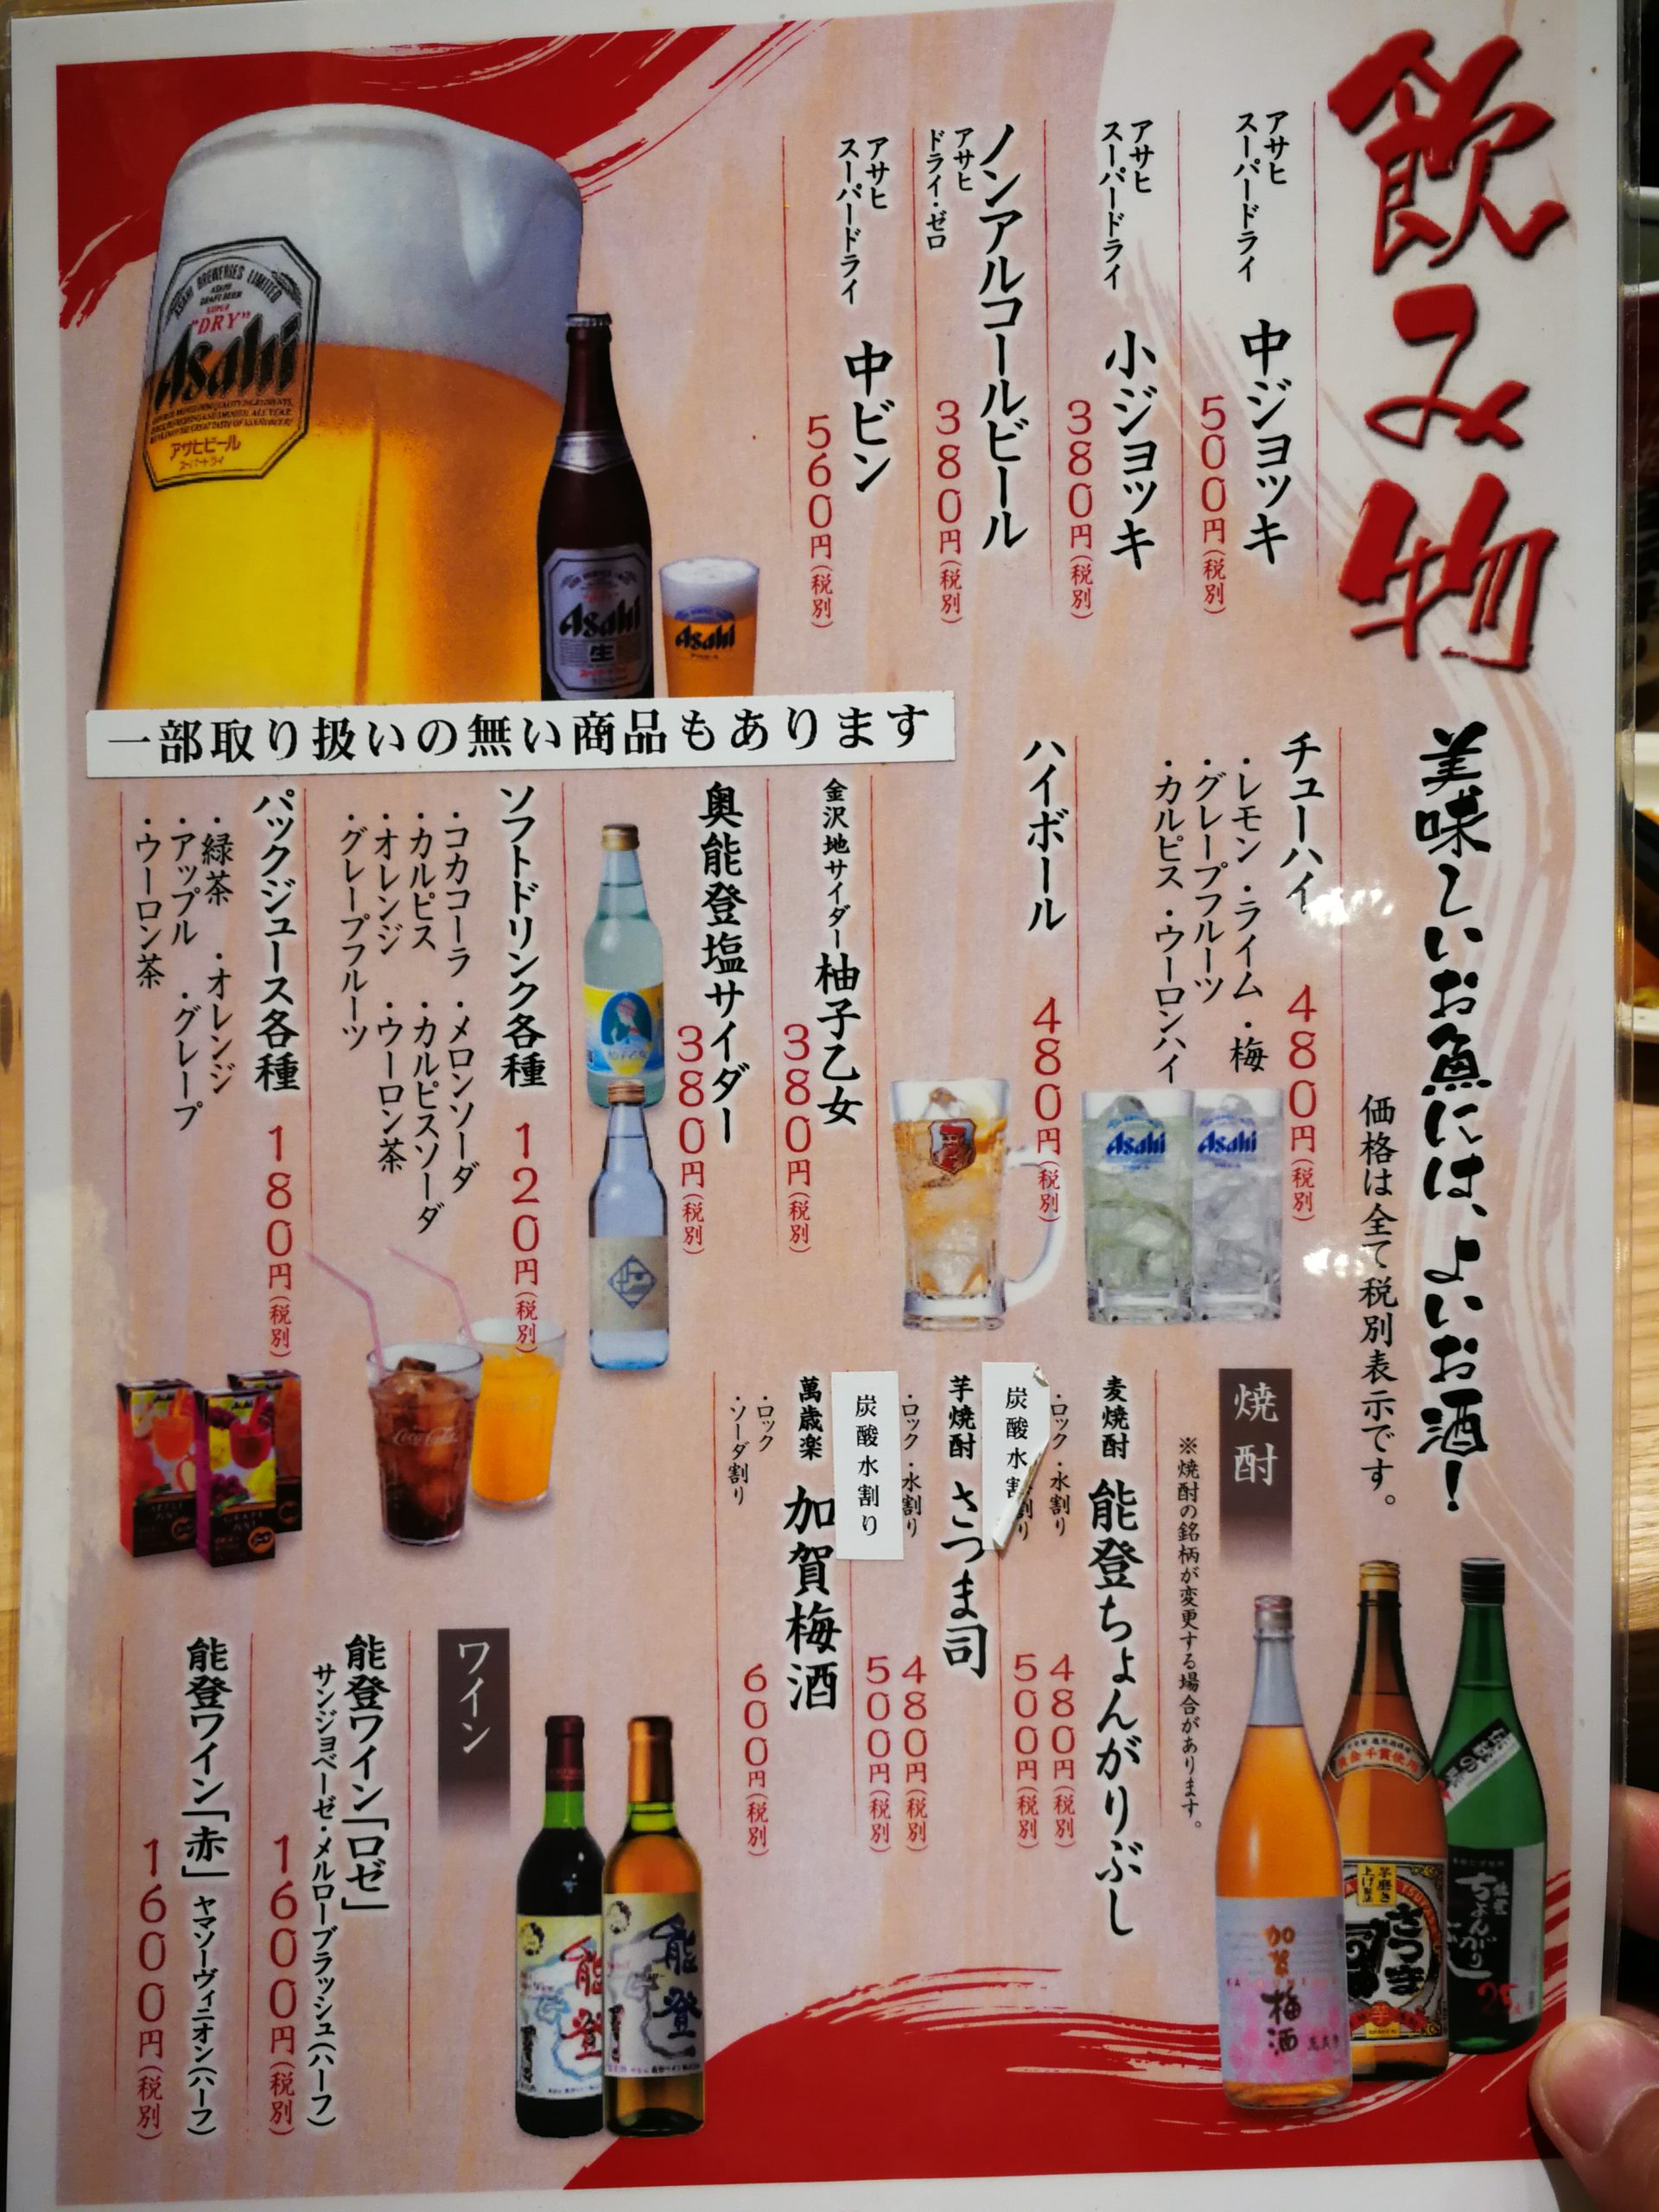 飲み物
アサヒ
スーパードライ
中ジョッキ
500円(税別)
アサヒ
スーパードライ
小ジョッキ
380円(税別)
ノンアルコールビール
アサヒ
ドライ・ゼロ
380円(税別)
アサヒ
スーパードライ
中ビン
560円(税別)
ASAHI BREWERIES LIMITED
ASAHI
DRAFT BEER
SUPER
"DRY"
Asahi
アサヒビール
スーパードライ
Asahi
生
Asahi
一部取り扱いの無い商品もあります
美味しいお魚には、よいお酒!
価格は全て税別表示です。
チューハイ
480円(税別)
・レモン・ライム・梅
・グレープフルーツ
・カルピス・ウーロンハイ
Asahi
Asahi
ハイボール
480円(税別)
金沢地サイダー 柚子乙女
380円(税別)
奥能登塩サイダー
380円(税別)
ソフトドリンク各種
120円(税別)
・コカコーラ・メロンソーダ
・カルピス・カルピスソーダ
・オレンジ・ウーロン茶
・グレープフルーツ
Coca-Cola
パックジュース各種
180円(税別)
・緑茶・オレンジ
・アップル・グレープ
・ウーロン茶
焼酎
※焼酎の銘柄が変更する場合があります。
麦焼酎 能登ちょんがりぶし
・ロック・水割り
480円(税別)
炭酸水割り
500円(税別)
芋焼酎 さつま司
・ロック・水割り
480円(税別)
炭酸水割り
500円(税別)
萬歳楽 加賀梅酒
・ロック
・ソーダ割り
600円(税別)
加賀
梅酒
さつま
能登
ちょんがり
25
ワイン
能登ワイン「ロゼ」
サンジョベーゼ・メルローブラッシュ(ハーフ)
1600円(税別)
能登ワイン「赤」
ヤマソーヴィニオン(ハーフ)
1600円(税別)
能登
能登